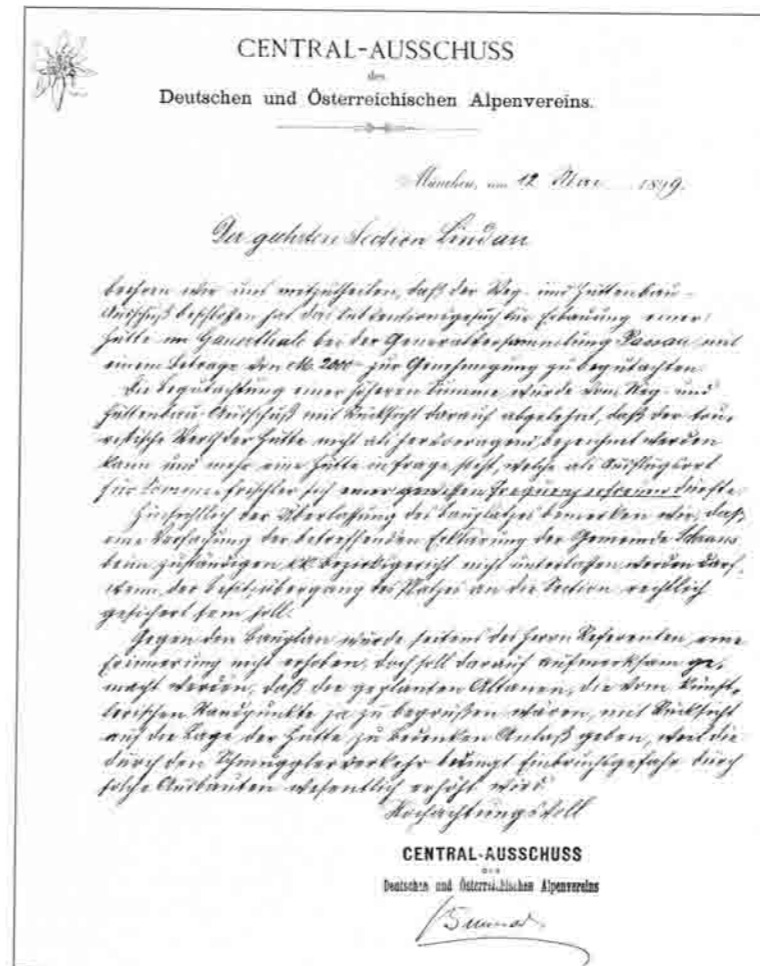 CENTRAL-AUSSCHUSS
des
Deutschen und Österreichischen Alpenvereins.
München, am 12 Mai 1899.
Der geehrten Section Lindau
beehren wir uns mitzutheilen, daß der Weg- und Hüttenbau-
Ausschuß beschloßen hat das Subventionsgesuch für Erbauung einer
Hütte im Gamperthale bei der Generalversammlung Passau mit
einem Betrage von M. 2000 zur Genehmigung zu begutachten.
Die Begutachtung einer höheren Summe wurde vom Weg- und
Hüttenbau-Ausschuß mit Rücksicht darauf abgelehnt, daß der tou-
ristische Werth der Hütte nicht als hervorragend bezeichnet werden
kann und mehr eine Hütte infrage steht, welche als Ausflugsort
für Sommerfrischler sich einer gewißen Frequenz erfreuen dürfte.
Hinsichtlich der Überlaßung des Bauplatzes bemerken wir, daß
eine der betreffenden Erklärung der Gemeinde Schaan
beim zuständigen k.k. Bezirksgericht nicht unterlaßen werden darf,
wenn der Besitzübergang des Platzes an die Section rechtlich
gesichert sein soll.
Gegen den Bauplan wurde seitens des Herrn Referenten eine
Erinnerung nicht erhoben, doch soll darauf aufmerksam ge-
macht werden, daß die geplanten Altanen, die vom künst-
lerischen Standpunkte ja zu begrüßen wären, mit Rücksicht
auf die Lage der Hütte zu Bedenken Anlaß geben, weil die
durch den Schmugglerverkehr bedingt Einbruchsgefahr durch
solche Ausbauten wesentlich erhöht wird.
Hochachtungsvoll
CENTRAL-AUSSCHUSS
des
Deutschen und Österreichischen Alpenvereins